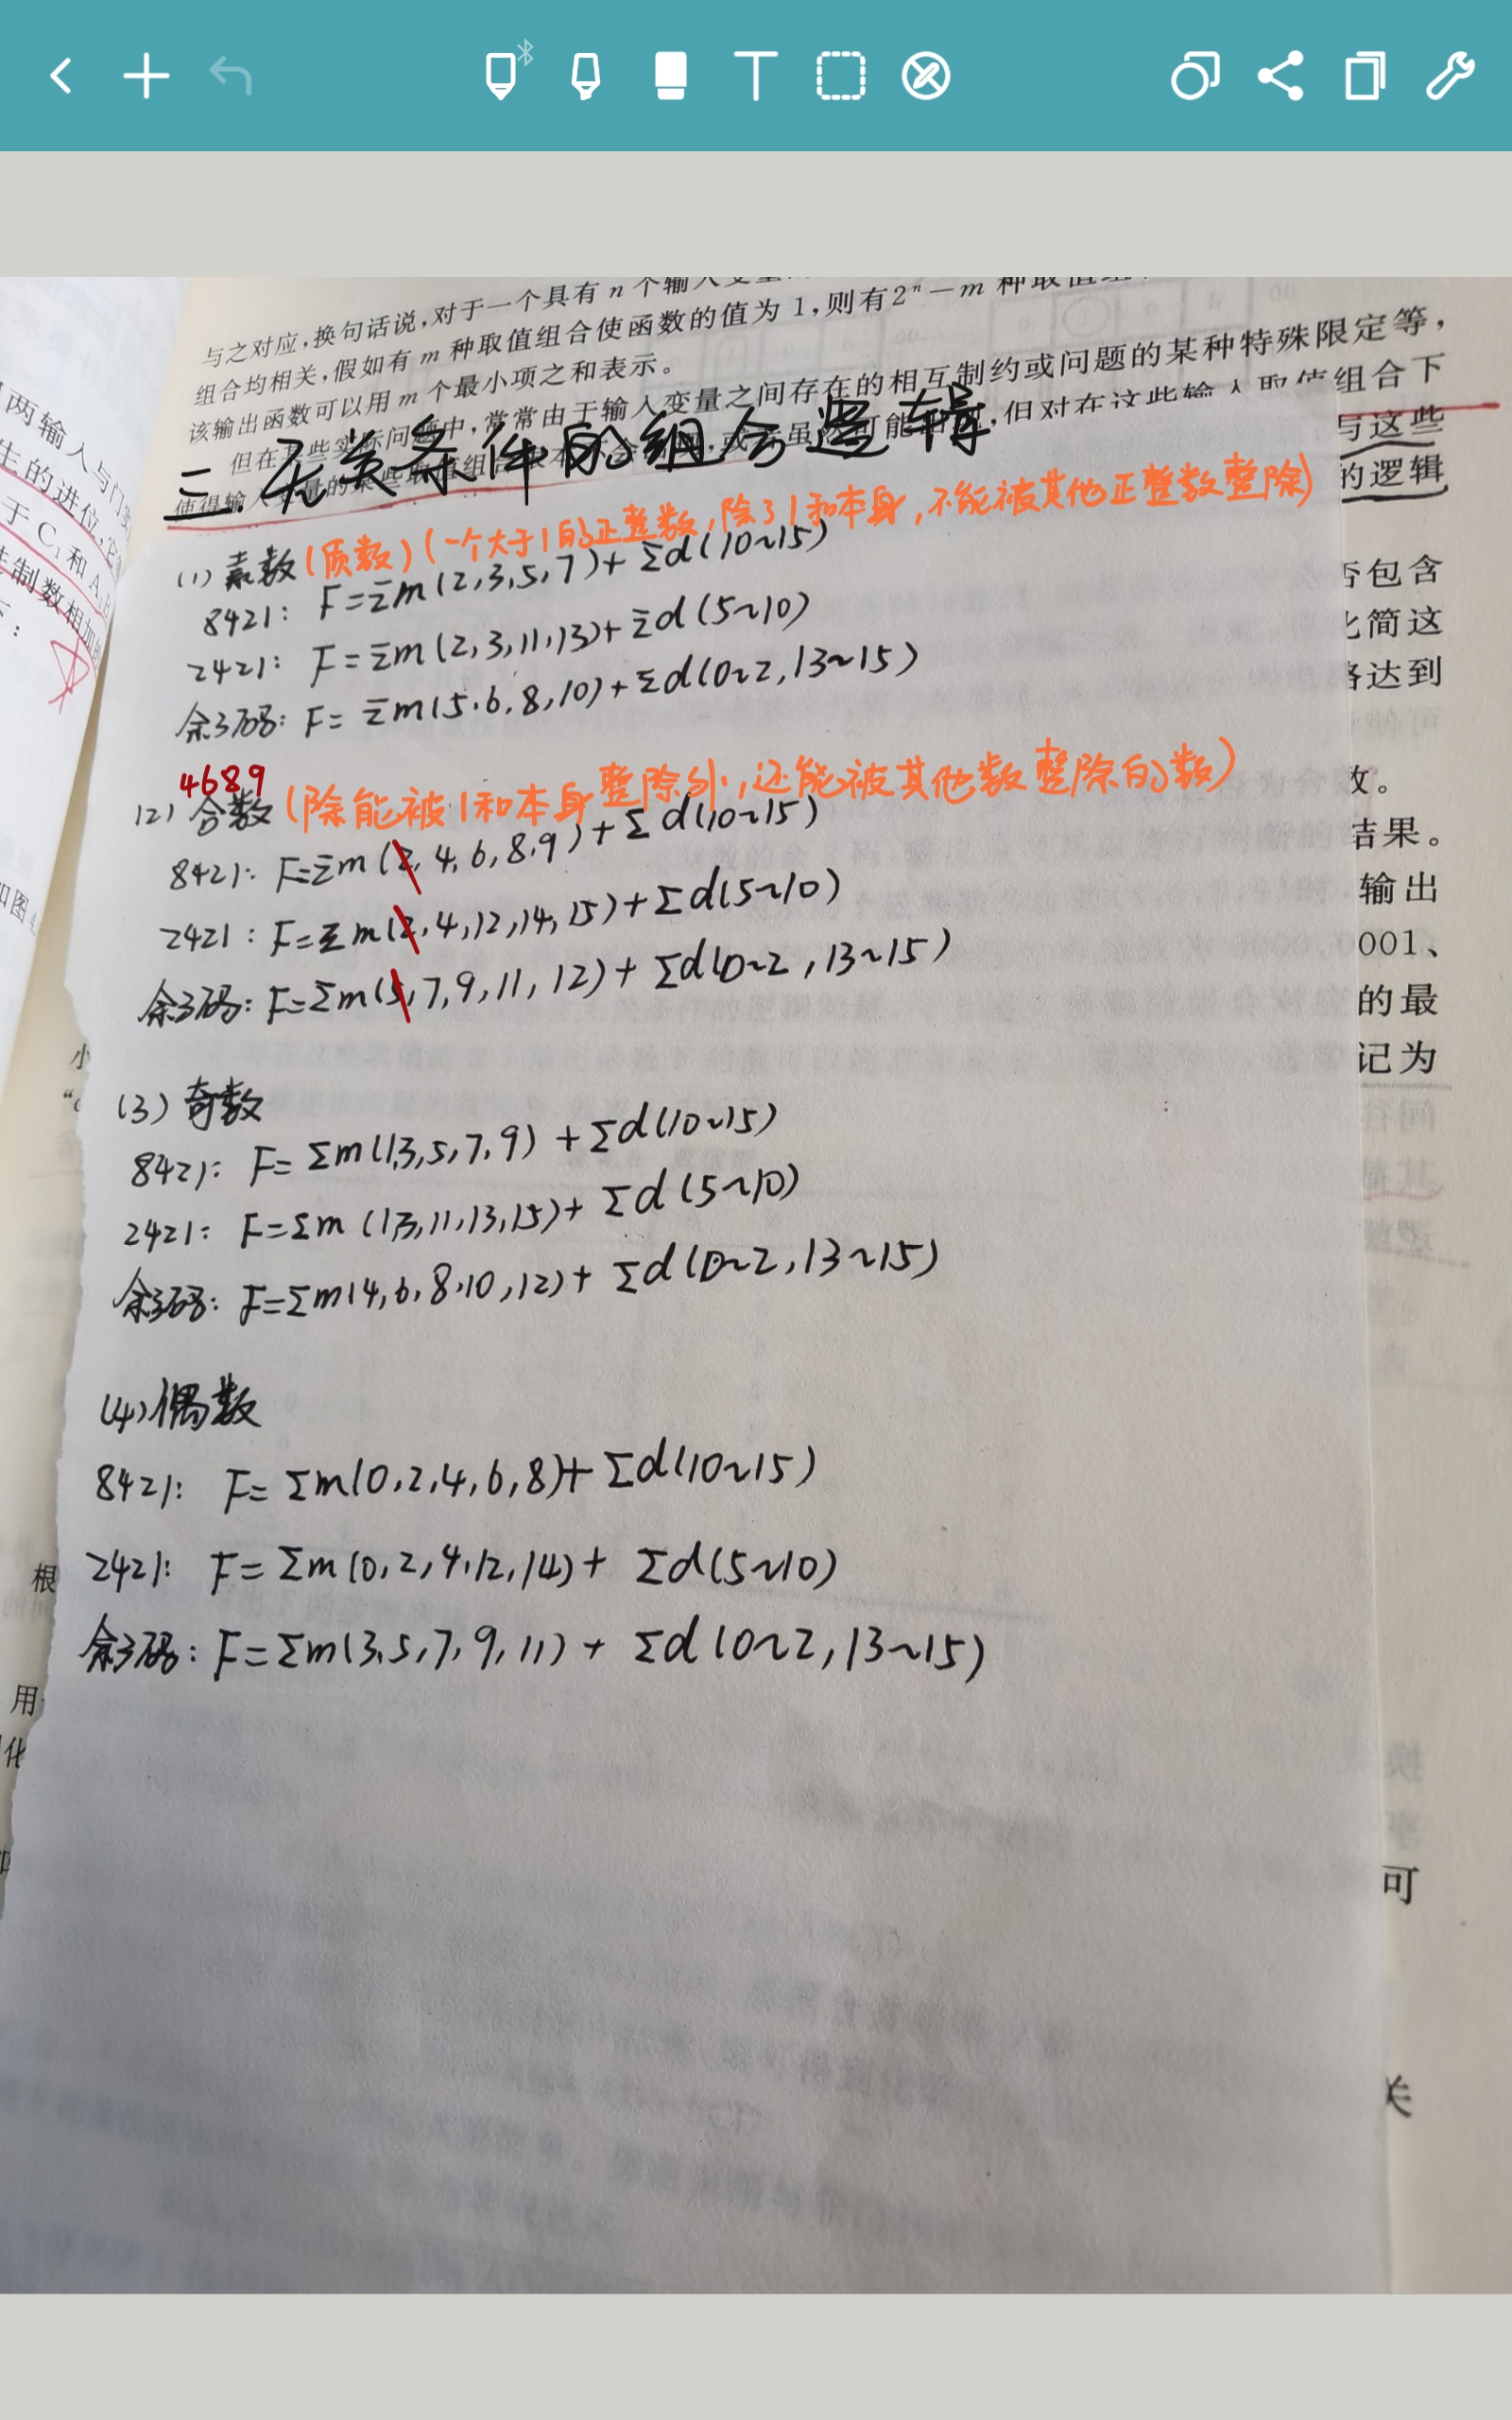 与之对应,换句话说,对于一个具有 n 个输入变
组合均相关,假如有 m 种取值组合使函数的值为 1,则有2ⁿ-m 种取值组
该输出函数可以用 m 个最小项之和表示。
但在某些实际问题中,常常由于输入变量之间存在的相互制约或问题的某种特殊限定等,
使得输入变量的某些取值组合 但对在这些输入取值组合下
二.无关条件的组合逻辑
与这些
的逻辑
(1)素数(质数)(一个大于1的正整数,除了1和本身,不能被其他正整数整除)
8421: F=Σm(2,3,5,7)+Σd(10~15)
2421: F=Σm(2,3,11,13)+Σd(5~10)
余3码: F=Σm(5,6,8,10)+Σd(0~2,13~15)
4689
(2)合数(除能被1和本身整除外,还能被其他数整除的数)
8421: F=Σm(2,4,6,8,9)+Σd(10~15)
2421: F=Σm(2,4,12,14,15)+Σd(5~10)
余3码: F=Σm(5,7,9,11,12)+Σd(0~2,13~15)
(3)奇数
8421: F=Σm(1,3,5,7,9)+Σd(10~15)
2421: F=Σm(1,3,11,13,15)+Σd(5~10)
余3码: F=Σm(4,6,8,10,12)+Σd(0~2,13~15)
(4)偶数
8421: F=Σm(0,2,4,6,8)+Σd(10~15)
2421: F=Σm(0,2,4,12,14)+Σd(5~10)
余3码: F=Σm(3,5,7,9,11)+Σd(0~2,13~15)
两输入与门
生的进位,
于 C₁和 A
制数相加
如图
小
根
用
化
否包含
化简这
达到
数。
结果。
输出
001、
的最
记为
可
关